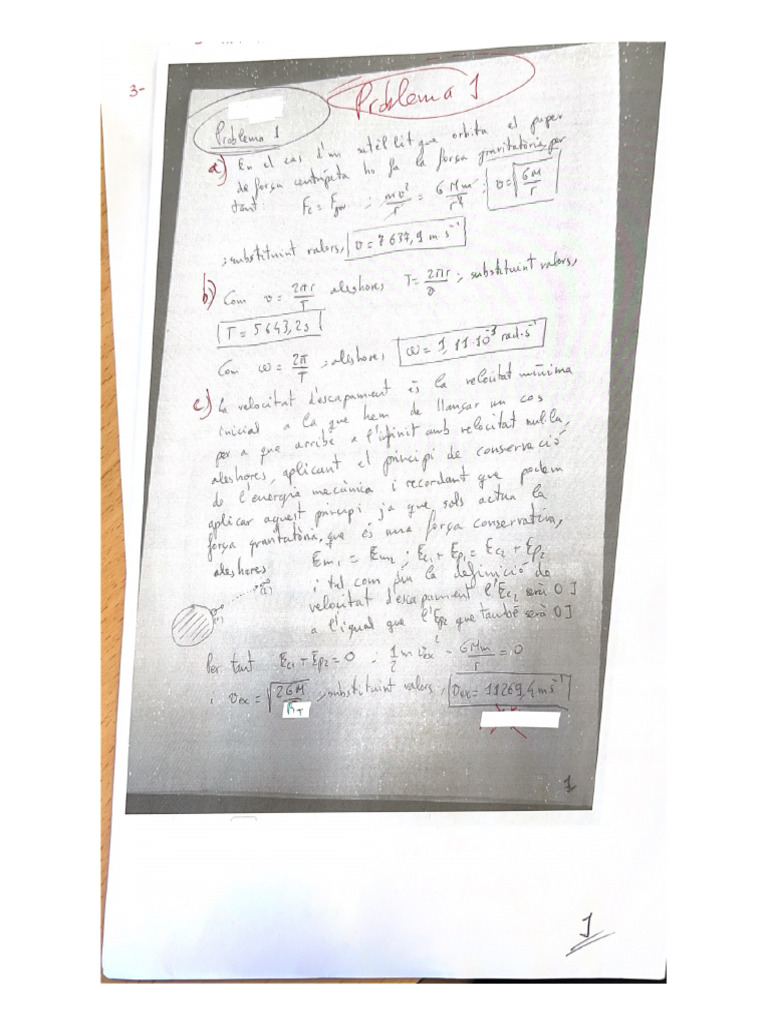 3-
Problema 1
Problema 1
a) En el cas d'un satèl·lit que orbita el paper
de força centrípeta ho fa la força gravitatòria, per
tant: Fc = Fgrav ; mv²/r = GMm/r² ; v = √(GM/r)
; substituint valors, v = 7637,9 m·s⁻¹
b) Com v = 2πr/T aleshores T = 2πr/v ; substituint valors,
T = 5643,2s
Com ω = 2π/T ; aleshores, ω = 1,11·10⁻³ rad·s⁻¹
c) La velocitat d'escapament és la velocitat mínima
inicial a la que hem de llançar un cos
per a que arribe a l'infinit amb velocitat nul·la,
aleshores, aplicant el principi de conservació
de l'energia mecànica i recordant que podem
aplicar aquest principi ja que sols actua la
força gravitatòria, que és una força conservativa,
aleshores Em₁ = Em₂ ; Ec₁ + Ep₁ = Ec₂ + Ep₂
i tal com diu la definició de
velocitat d'escapament l'Ec₂ serà 0J
a l'igual que l'Ep₂ que també serà 0J
(1) (2)
Per tant Ec₁ + Ep₂ = 0 ; 1/2 m vex² - GMm/r = 0
; vex = √(2GM/R_T) ; substituint valors, vex = 11269,4 m·s⁻¹
1
1